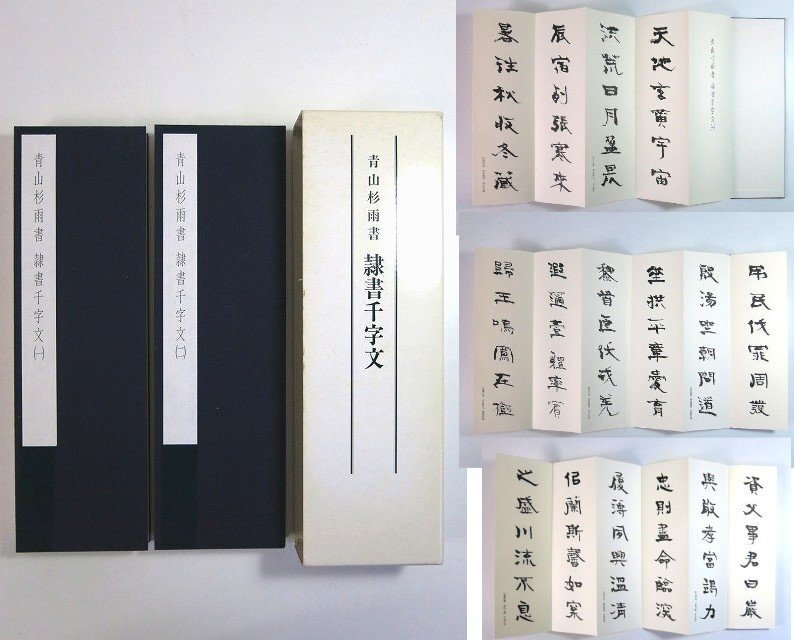 青山杉雨書 隷書千字文(一)
青山杉雨書 隷書千字文(二)
青山杉雨書 隷書千字文
青山杉雨書 隷書千字文(一)
天地玄黄宇宙
洪荒日月盈昃
辰宿列張寒来
暑往秋收冬藏
弔民伐罪周發
殷湯坐朝問道
垂拱平章愛育
黎首臣伏戎羌
遐邇壹軆率賓
歸王鳴鳳在樹
資父事君曰嚴
與敬孝當竭力
忠則盡命臨深
履薄夙興温凊
佀蘭斯馨如
之盛川流不息